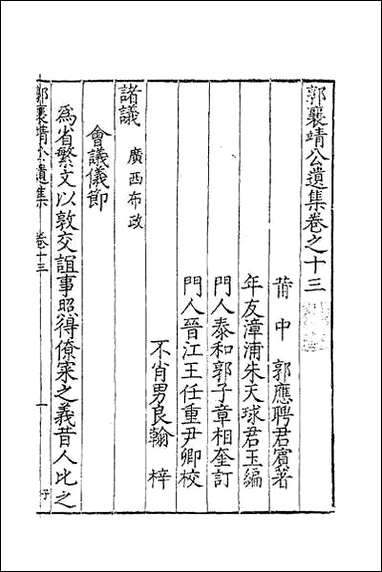 郭襄靖公遺集卷之十三
莆中 郭應聘君賓著
年友漳浦朱天球君玉編
門人泰和郭子章相奎訂
門人晉江王任重尹卿校
不肖男良翰 梓
諸議 廣西布政
會議儀節
爲省繁文以敦交誼事照得僚寀之義昔人比之
郭襄靖公遺集 卷十三 一